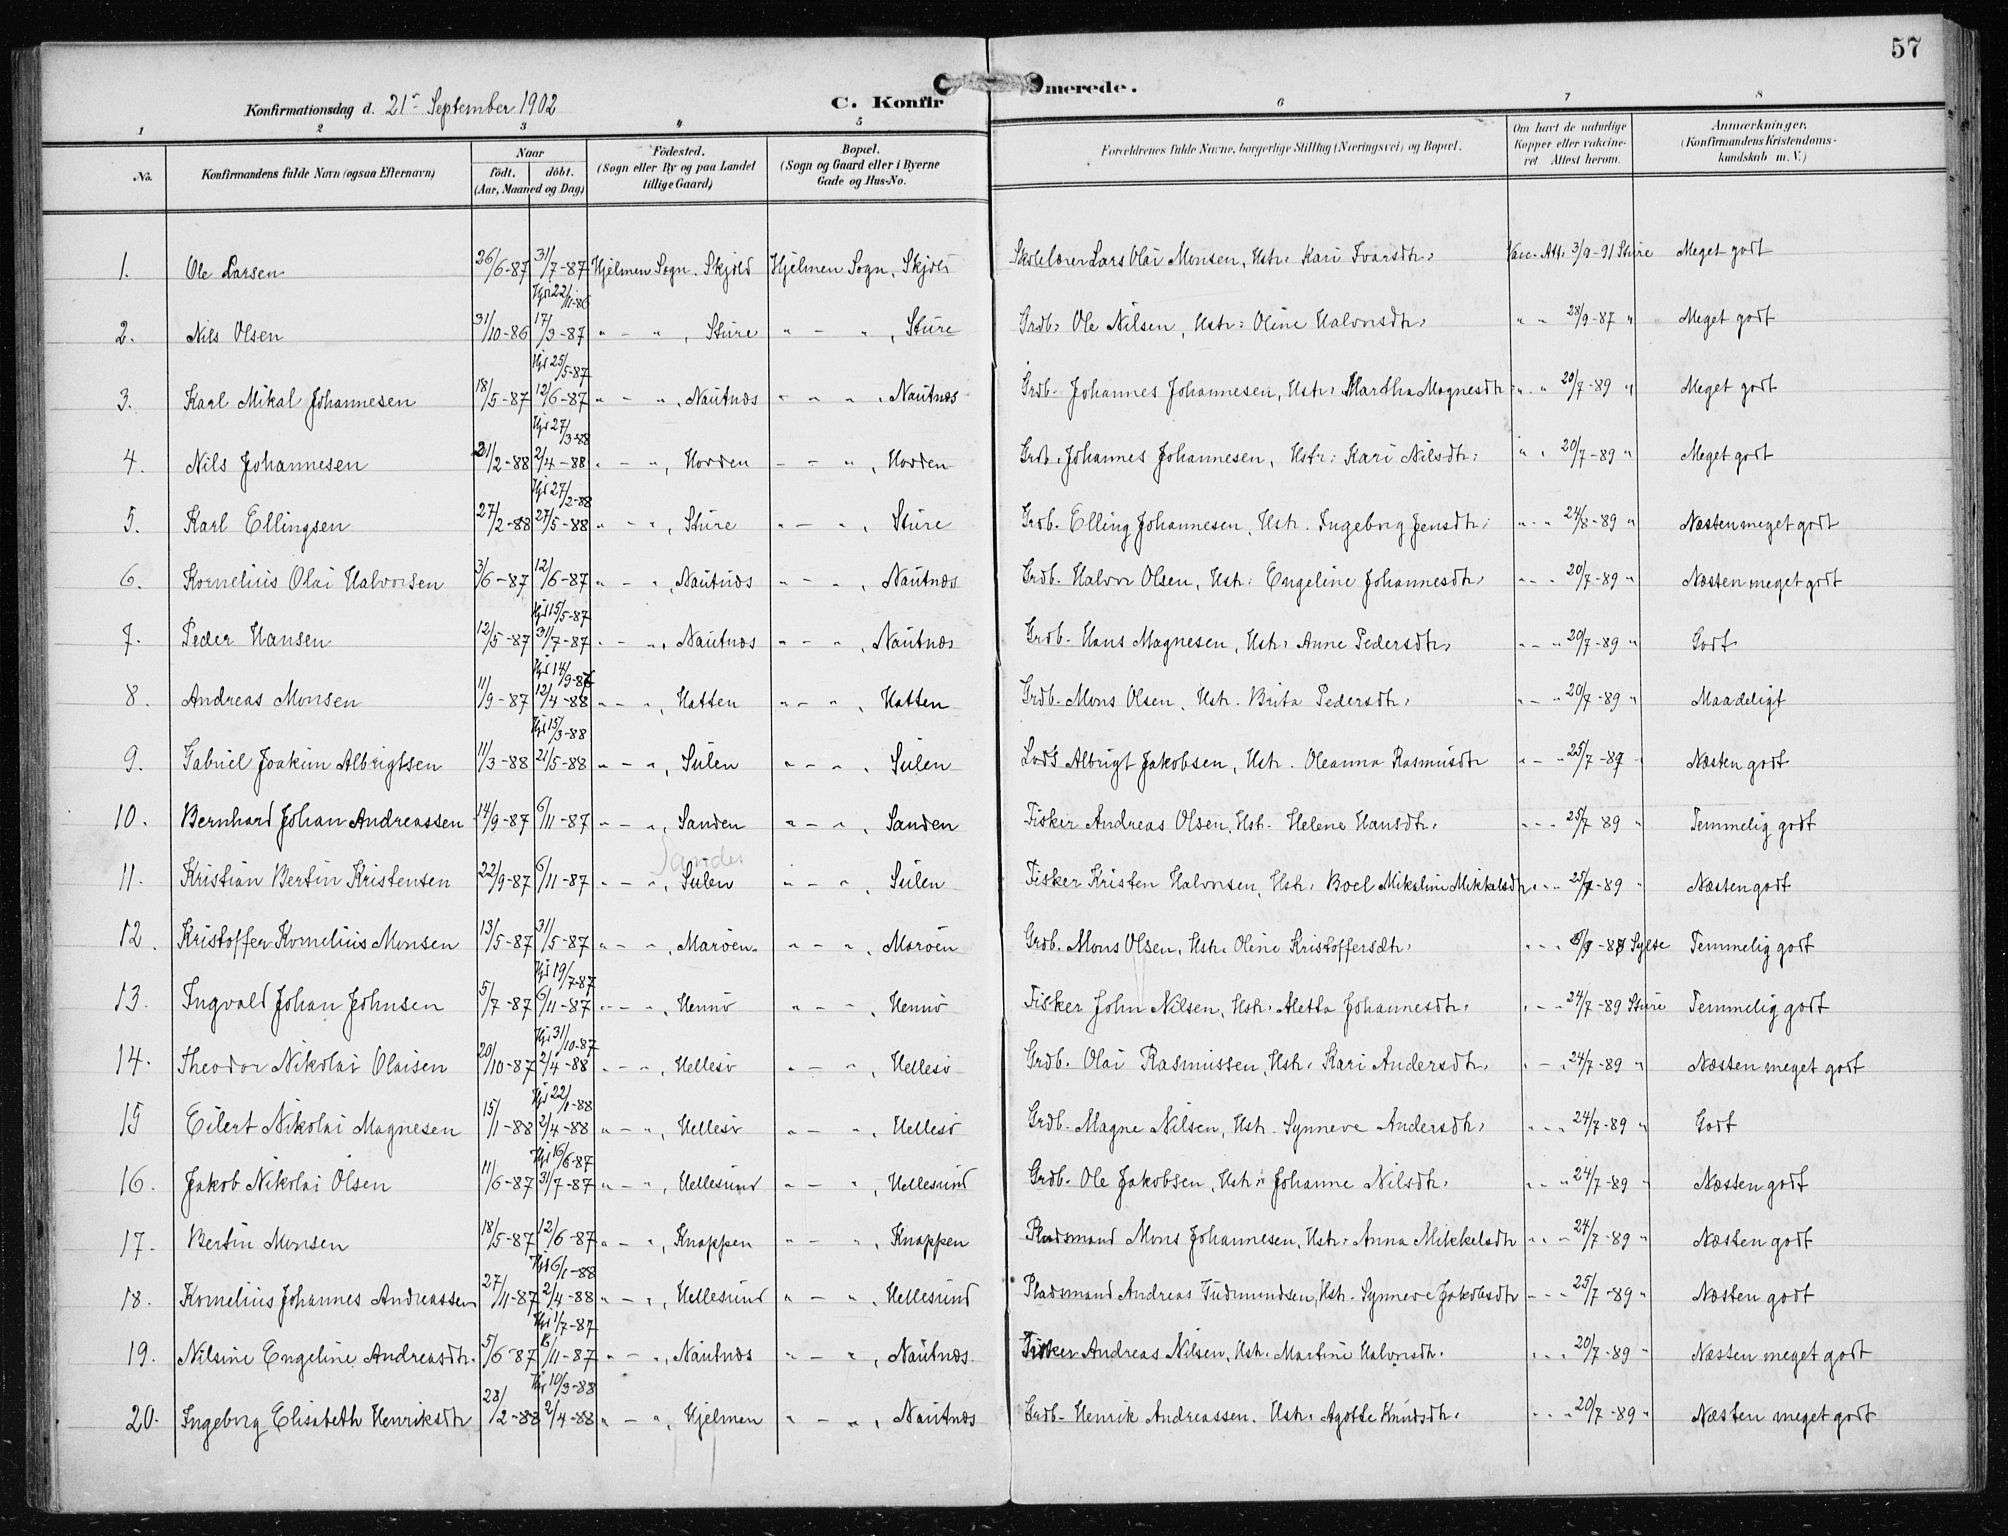 57
Konfirmationsdag d. 21de September 1902 C. Konfirmerede.
1 2 3 4 5 6 7 8
No. Konfirmandens fulde Navn (ogsaa Efternavn) Naar födt. döbt. (Aar, Maaned og Dag) Födested. (Sogn eller By og paa Landet tillige Gaard) Bopæl. (Sogn og Gaard eller i Byerne Gade og Hus-No. Forældrenes fulde Navne, borgerlige Stilling (Næringsvei) og Bopæl. Om havt de naturlige Kopper eller vaccineret Attest herom. Anmærkninger. (Konfirmandens Kristendomskundskab m. V.)
1. Ole Larsen 26/6-87 31/7-87 Hjelmen Sogn. Skjold Hjelmen Sogn, Skjold Skolelærer Lars Olai Monsen, Hstr. Kari Ivarsdtr. Vac. Att. 3/9-91 Sture Meget godt
2. Nils Olsen 31/10-86 Hjd 22/11-86 17/3-87 " - " , Sture " - " , Sture Grdb. Ole Nilsen, Hstr: Oline Halvorsdtr. " " 28/9-87 " Meget godt
3. Karl Mikal Johannesen 18/5-87 Hjd 25/5-87 12/6-87 " - " , Nautnæs " - " , Nautnæs Grdb. Johannes Johannesen, Hstr. Martha Magnesdtr. " " 20/7-89 " Meget godt
4. Nils Johannesen 21/2-88 Hjd 27/3-88 2/4-88 " - " , Horden " - " , Horden Grdb. Johannes Johannesen, Hstr: Kari Nilsdtr. " " 20/7-89 " Meget godt
5. Karl Ellingsen 27/2-88 Hjd 27/2-88 27/5-88 " - " , Sture " - " , Sture Grdb. Elling Johannesen, Hstr. Ingeborg Jensdtr. " - " 24/8-89 " Næsten meget godt
6. Kornelius Olai Halvorsen 3/6-87 12/6-87 " - " , Nautnæs " - " , Nautnæs Grdb. Halvor Olsen, Hstr: Engeline Johannesdtr. " - " 20/7-89 " Næsten meget godt
7. Peder Hansen 12/5-87 Hjd 15/5-87 31/7-87 " - " , Nautnæs " - " , Nautnæs Grdb. Hans Magnesen, Hstr. Anne Pedersdtr. " - " 20/7-89 " Godt
8. Andreas Monsen 11/9-87 Hjd 14/9-86 12/4-88 " - " , Hatten " - " , Hatten Grdb. Mons Olsen, Hstr. Brita Pedersdtr. " - " 20/7-89 " Maadeligt
9. Gabriel Joakim Albrigtsen 11/3-88 Hjd 15/3-88 21/5-88 " - " , Sulen " - " , Sulen Lods Albrigt Jakobsen, Hstr. Oleanna Rasmusdtr " - " 25/7-87 " Næsten godt
10. Bernhard Johan Andreassen 14/9-87 6/11-87 " - " , Sanden " - " , Sanden Fisker Andreas Olsen, Hstr. Helene Hansdtr. " - " 25/7 89 " Temmelig godt
Sanden
11. Kristian Bertin Kristensen 22/9-87 6/11-87 " - " , Sulen " - " , Sulen Fisker Kristen Halvorsen, Hstr. Boel Mikaline Mikkelsdtr. " - " 25/7-89 " Næsten godt
12. Kristoffer Kornelius Monsen 13/5-87 31/5-87 " - " , Maröen " - " , Maröen Grdb. Mons Olsen, Hstr. Oline Kristoffersdtr. Temmelig godt
13. Ingvald Johan Johnsen 5/7-87 Hjd 19/7-87 6/11-87 " - " , Hennö " - " , Hennö Fisker John Nilsen, Hstr. Aletta Johannesdtr. " - " 24/7-89 Sture Temmelig godt
14. Theodor Nikolai Olaisen 20/10-87 Hjd 31/10-87 2/4-88 " - " , Hellesö " - " , Hellesö Grdb. Olai Rasmussen, Hstr. Kari Andersdtr. " - " 24/7-89 " Næsten meget godt
15 Eilert Nikolai Magnesen 15/1-88 Hjd 22/1-88 2/4-88 " - " , Hellesö " - " , Hellesö Grdb. Magne Nilsen, Hstr. Synneve Andersdtr. " - " 24/7-89 " Godt
16. Jakob Nikolai Olsen 11/6-87 Hjd 16/6-87 31/7-87 " - " , Hellesund " - " , Hellesund Grdb. Ole Jakobsen, Hstr: Johanne Nilsdtr. " - " 24/7-89 " Næsten godt
17. Bertin Monsen 18/5-87 12/6-87 " - " , Knappen " - " , Knappen Pladsmand Mons Johannesen, Hstr. Anna Mikkelsdtr " - " 24/7-89 " Næsten godt
18. Kornelius Johannes Andreassen 27/11-87 Hjd 6/1-88 2/4-88 " - " , Hellesund " - " , Hellesund Pladsmand Andreas Gudmundsen, Hstr. Synneve Jakobsdtr " - " 25/7-89 " Næsten godt
19. Nilsine Engeline Andreasdtr. 5/6-87 Hjd 1/7-87 6/11-87 " - " , Nautnæs " - " , Nautnæs. Fisker Andreas Nilsen, Hstr. Martine Halvorsdtr. " - " 20/7-89 " Næsten meget godt
20. Ingeborg Elisabeth Henriksdtr 28/2-88 Hjd 10/3-88 2/4-88 " - " , Hjelmen " - " , Nautnæs Grdb. Henrik Andreassen. Hstr. Agothe Knudsdtr. " - " 20/7-89 " Næsten meget godt